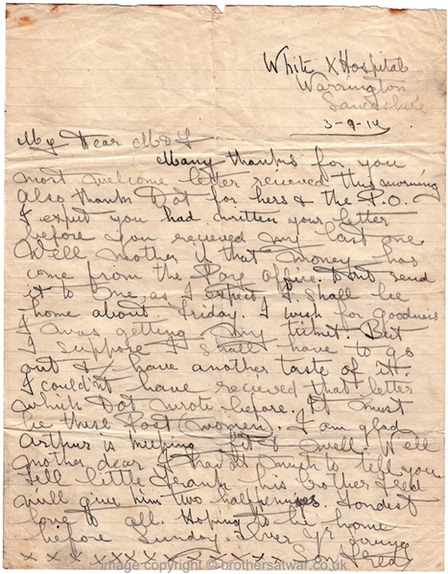 White X Hospital
Warrington
Lancashire
3-9-14
My Dear M & F
Many thanks for you
most welcome letter recieved this morning
Also thanks Dot for hers & the P.O.
I expect you had written your letter
before you recieved my last one
Well mother is that money has
come from the Pay Office. Dont send
it to me, as I expect I shall be
home about Friday. I wish for goodness
I was getting my ticket. But
I suppose I shall have to go
out & have another taste of it.
I couldn't have recieved that letter
which Dot wrote before. It must
be these Post (women). I am glad
Arthur is keeping fit & well. Well
mother dear I havent much to tell you
Tell little Frank his brother Fred
will give him two halfpennies. Fondest
love to all. Hoping to be home
before Sunday. Ever Yr loving
x x x x x x x x x x Son Fred
image copyright © brothersatwar.co.uk